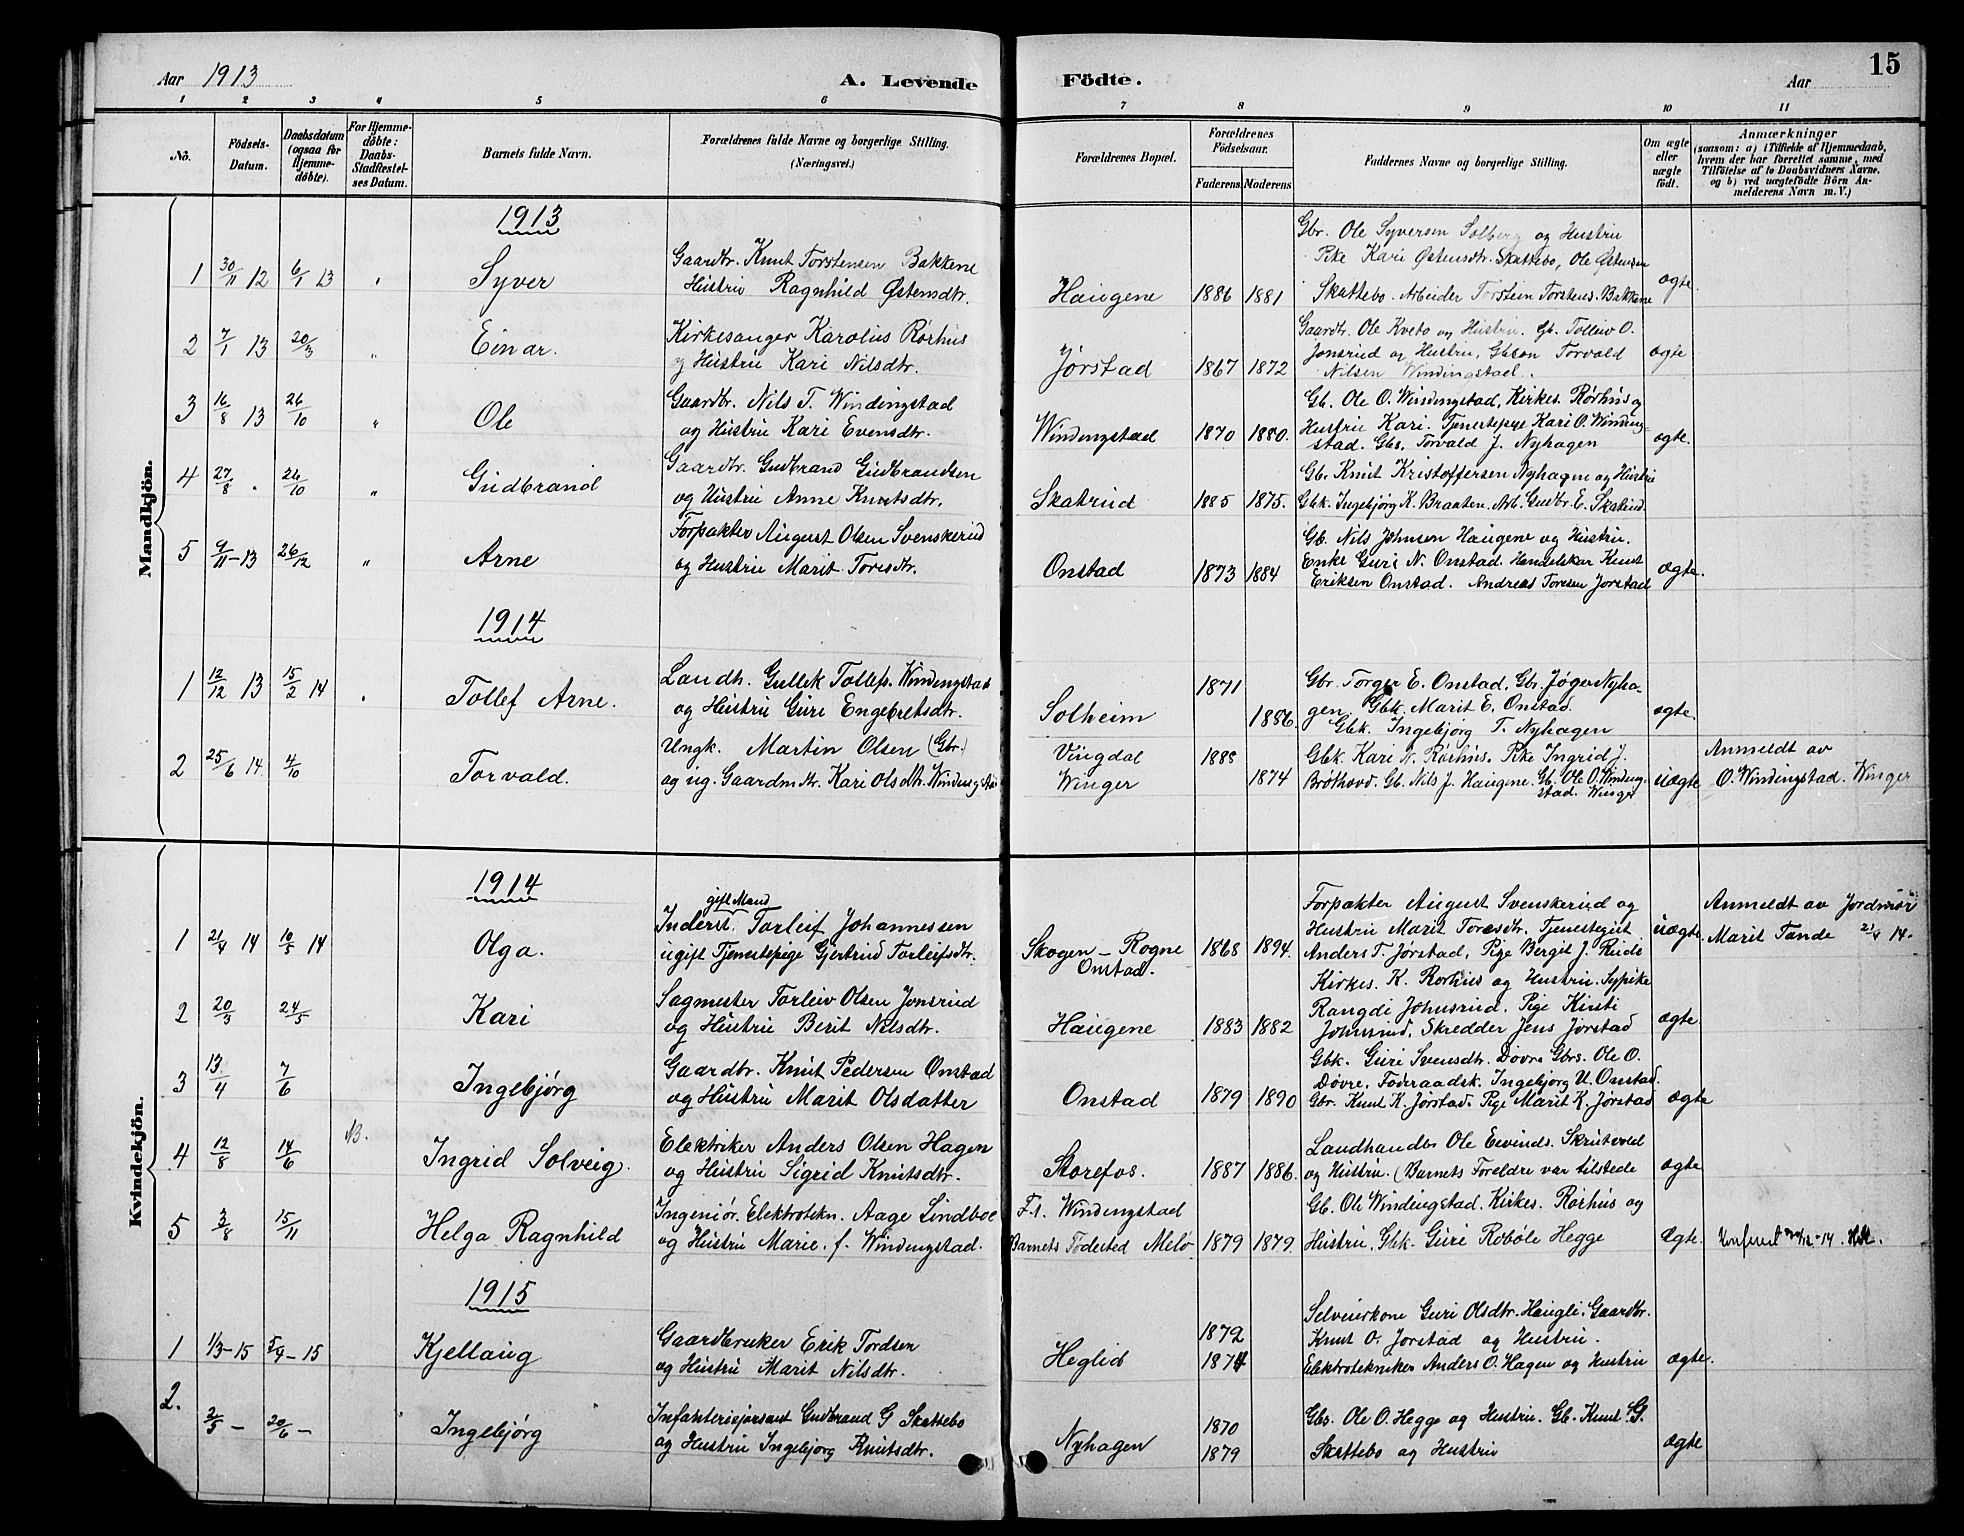 Aar 1913
A. Levende Födte.
Aar
15
1 2 3 4 5 6 7 8 9 10 11
No.
Födsels-Datum.
Daabsdatum (ogsaa for Hjemme-döbte).
For Hjemme-döbte: Daabs-Stadfestel-ses Datum.
Barnets fulde Navn.
Forældrenes fulde Navne og borgerlige Stilling. (Næringsvei.)
Forældrenes Bopæl.
Forældrenes Födselsaar.
Faderens Moderens
Faddernes Navne og borgerlige Stilling.
Om ægte eller uægte födt.
Anmærkninger
(saasom: a) i Tilfælde af Hjemmedaab,
hvem der har forrettet samme, med
Tilföielse af to Daabsvidners Navne,
og b) ved uægtefödte Börn An-
melderens Navn m. V.)
Mandkjön.
1913
1 30/11 12 6/1 13 " Syver
Gaardbr. Knut Torstensen Bakkene
Hustru Ragnhild Østensdtr.
Haugene 1886 1881
Gbr. Ole Syversen Solberg og Hustru
Pike Kari Østensdtr. Skattebo, Ole Østensen
Skattebo. Arbeider Torstein Torstens. Bakkene
ægte
2 7/1 13 20/3 " Einar.
Kirkesanger Karolius Rørhus
og Hustru Kari Nilsdtr.
Jørstad 1867 1872
Gaardbr. Ole Kvebo og Hustru. Gb. Tolleiv O.
Jonsrud og Hustru, Gbsøn Torvald
Nilsen Windingstad.
ægte
3 16/8 13 26/10 " Ole
Gaardbr. Nils T. Windingstad
og Hustru Kari Evensdtr.
Windingstad 1870 1880.
Gb. Ole O. Windingstad, Kirkes. Rørhus og
Hustru Kari. Tjenestepige Kari O. Winding-
stad. Gbs. Torvald J. Nyhagen
ægte.
4 27/8 . 26/10 " Gudbrand
Gaardbr. Gudbrand Gudbrandsen
og Hustru Anne Knutsdtr.
Skatrud 1885 1875.
Gb. Knut Kristoffersen Nyhagen og Hustru
Gbk. Ingebjørg K. Braaten. Arb. Gudbr. E. Skatrud.
5 9/11-13 26/12 " Arne
Forpakter August Olsen Svenskerud
og Hustru Marit Toresdtr.
Onstad 1873 1884
Gb. Nils Johnsen Haugene og Hustru.
Enke Guri N. Onstad. Handelskar Knut
Eriksen Onstad. Andreas Toresen Jørstad
ægte.
1914
1 12/12 13 15/2 14 " Tollef Arne.
Landh. Gullek Tollefs. Windingstad
og Hustru Guri Engebretsdtr.
Solheim 1871 1886.
Gbr. Torger E. Onstad. Gbr. Jøger Nyha-
gen. Gbk. Marit E. Onstad
Gbk. Ingebjørg T. Nyhagen
ægte.
2 25/6 14. 4/10 Torvald.
Ungk. Martin Olsen (Gbr.)
og ug. Gaardmdtr. Kari Olsdtr. Windingstad
Vingdal
Winger 1888 1874
Gbk. Kari N. Rørhus. Pike Ingrid J.
Brøthovd. Gb. Nils J. Haugene. Gb. Ole O. Winding-
stad. Winger
uægte
Anmeldt av
O. Windingstad. Winger
Kvindekjön.
1914
1 21/4 14 10/5 14 Olga.
gift Mand
Inderst. Torleif Johannessen
ugift Tjenestepige Gjertrud Torleifsdtr.
Skogen – Rogne
Onstad. 1868 1894.
Forpakter August Svenskerud og
Hustru Marit Toresdtr. Tjenestegut
Anders T. Jørstad, Pige Bergit J. Rude
uægte.
Anmeldt av Jordmor
Marit Tande 21/4 14.
2 20/3 24/5 Kari
Sagmester Torleiv Olsen Jonsrud
og Hustru Berit Nilsdtr.
Haugene 1883 1882
Kirkes. K. Rørhus og Hustru. Sypike
Rangdi Johnsrud. Pige Kirsti
Johnsrud, Skredder Jens Jørstad
ægte.
3 13/4 7/6 Ingebjørg
Gaardbr. Knut Pedersen Onstad
og Hustru Marit Olsdatter
Onstad 1879 1890
Gbk. Guri Svensdtr. Døvre Gbrs. Ole O.
Døvre, Føderaadsk. Ingebjørg U. Onstad.
Gbr. Knut K. Jørstad. Pige Marit K. Jørstad
ægte
4 12/8 14/6 NB. Ingrid Solveig.
Elektriker Anders Olsen Hagen
og Hustru Sigrid Knutsdtr.
Storefos. 1887 1886.
Landhandler Ole Eivinds. Skrutvold
og Hustru. (Barnets Foreldre var tilstede
ægte
5 3/8 15/11 Helga Ragnhild
Ingeniør. Elektrotekn. Aage Lindboe
og Hustru Marie. f. Windingstad.
F.t. Windingstad
Barnets Fødested Melø 1879 1879.
Gb. Ole Windingstad. Kirkes. Rørhus og
Hustru. Gbk. Guri Robøle Hegge
Ægte.
1915
1 1/3-15 5/4-15 Kjellaug
Gaardbruker Erik Tordsen
og Hustru Marit Nilsdtr.
Heglid 1872 1874
Selveierkone Guri Olsdtr. Haugli. Gaardbr.
Knut O. Jørstad og Hustru.
Elektrotekniker Anders O. Hagen og Hustru
ægte.
2. 2/5 – 20/6 – Ingebjørg
Infanteriesersant Gudbrand G Skattebo
og Hustru Ingebjørg Knutsdtr.
Nyhagen 1870 1879
Gbs. Ole O. Hegge og Hustru. Gb. Knut G.
Skattebo og Hustru
ægte